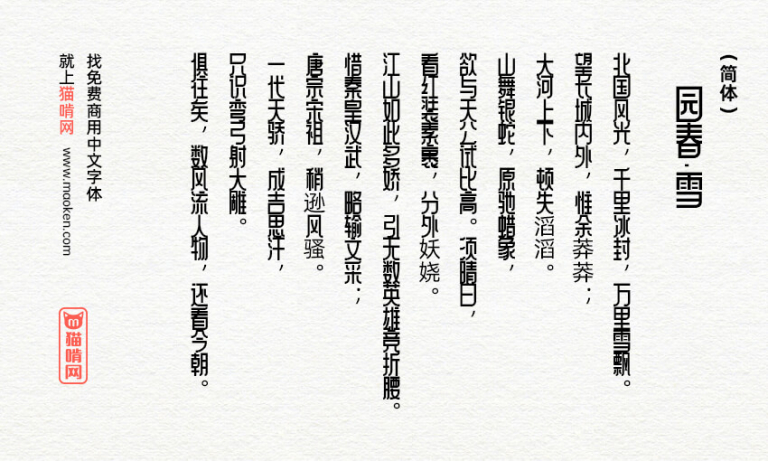 (简体)
园春·雪
北国风光，千里冰封，万里雪飘。
望长城内外，惟余莽莽；
大河上下，顿失滔滔。
山舞银蛇，原驰蜡象，
欲与天公试比高。须晴日，
看红装素裹，分外妖娆。
江山如此多娇，引无数英雄竞折腰。
惜秦皇汉武，略输文采；
唐宗宗祖，稍逊风骚。
一代天骄，成吉思汗，
只识弯弓射大雕。
俱往矣，数风流人物，还看今朝。
找免费商用中文字体
就上猫啃网 www.mooken.com
猫啃网